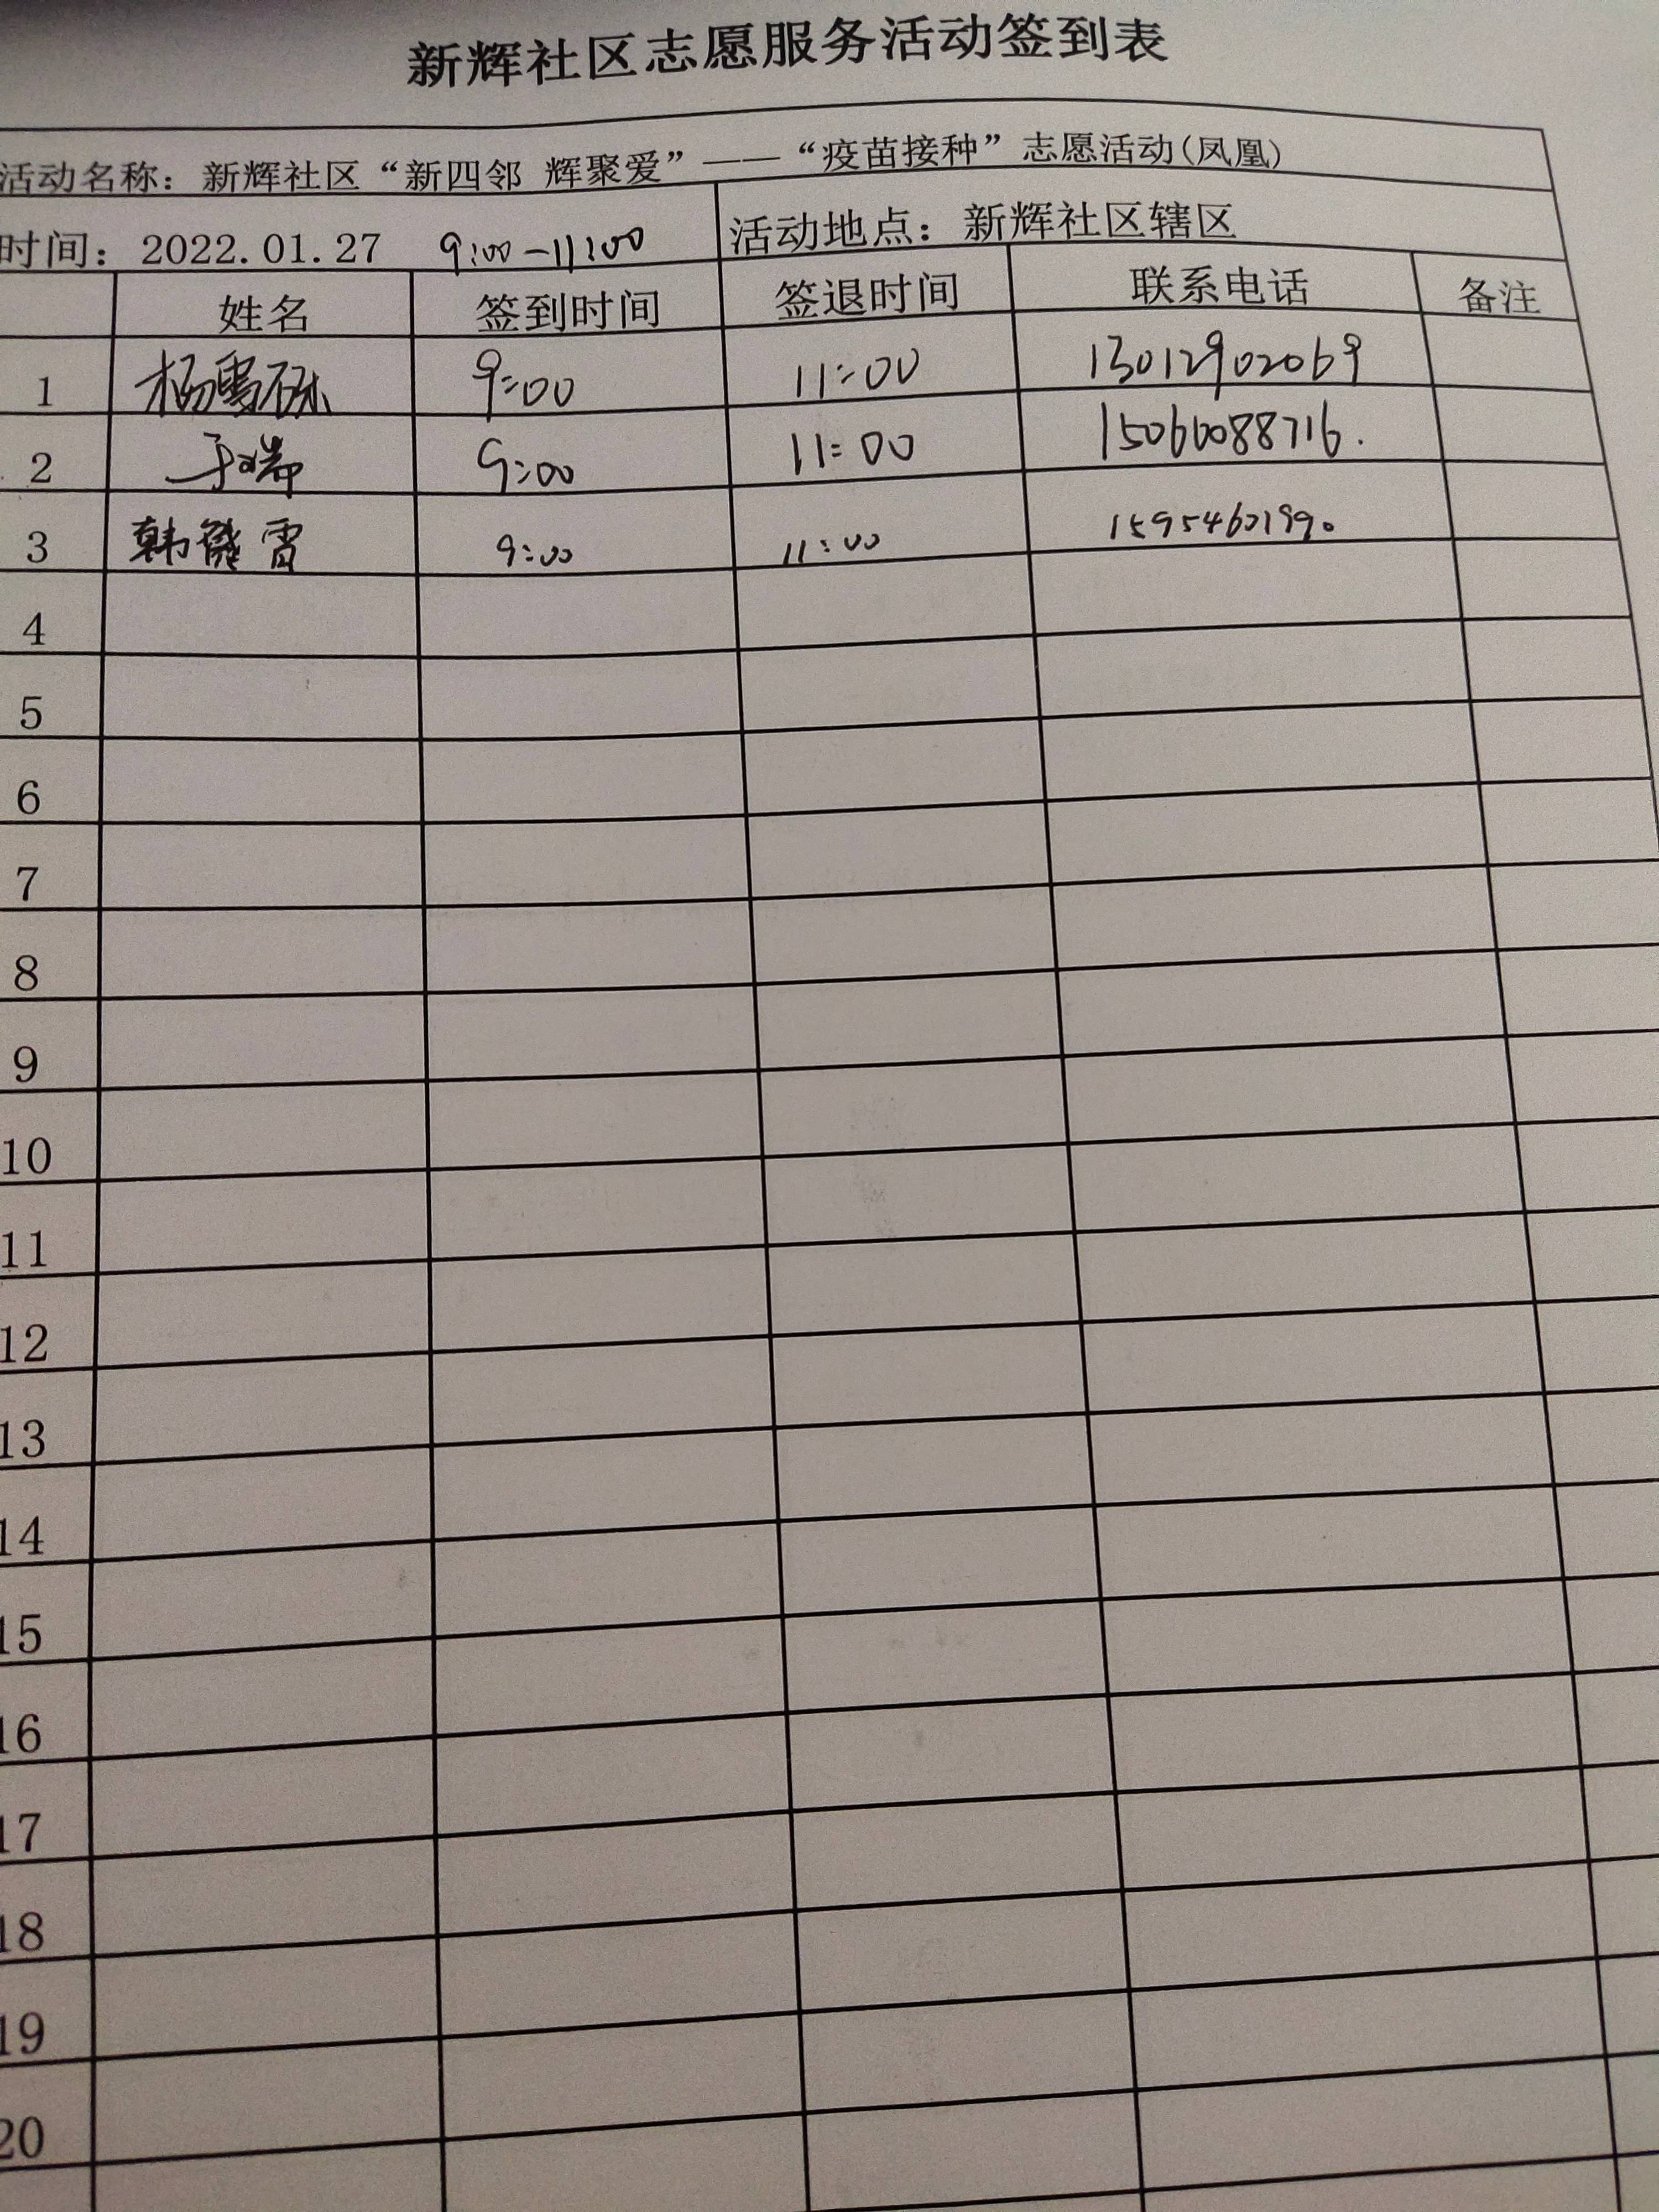 新辉社区志愿服务活动签到表
活动名称：新辉社区“新四邻 辉聚爱”——“疫苗接种”志愿活动(凤凰)
时间：2022.01.27 9:00-11:00 活动地点：新辉社区辖区
姓名 签到时间 签退时间 联系电话 备注
1 杨雪 9:00 11:00 13012902069
2 于瑞 9:00 11:00 15060088716.
3 韩 雷 9:00 11:00
4
5
6
7
8
9
10
11
12
13
14
15
16
17
18
19
20